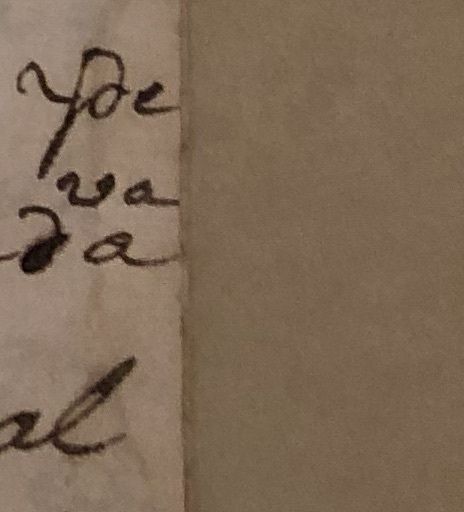 y de
va
da
al